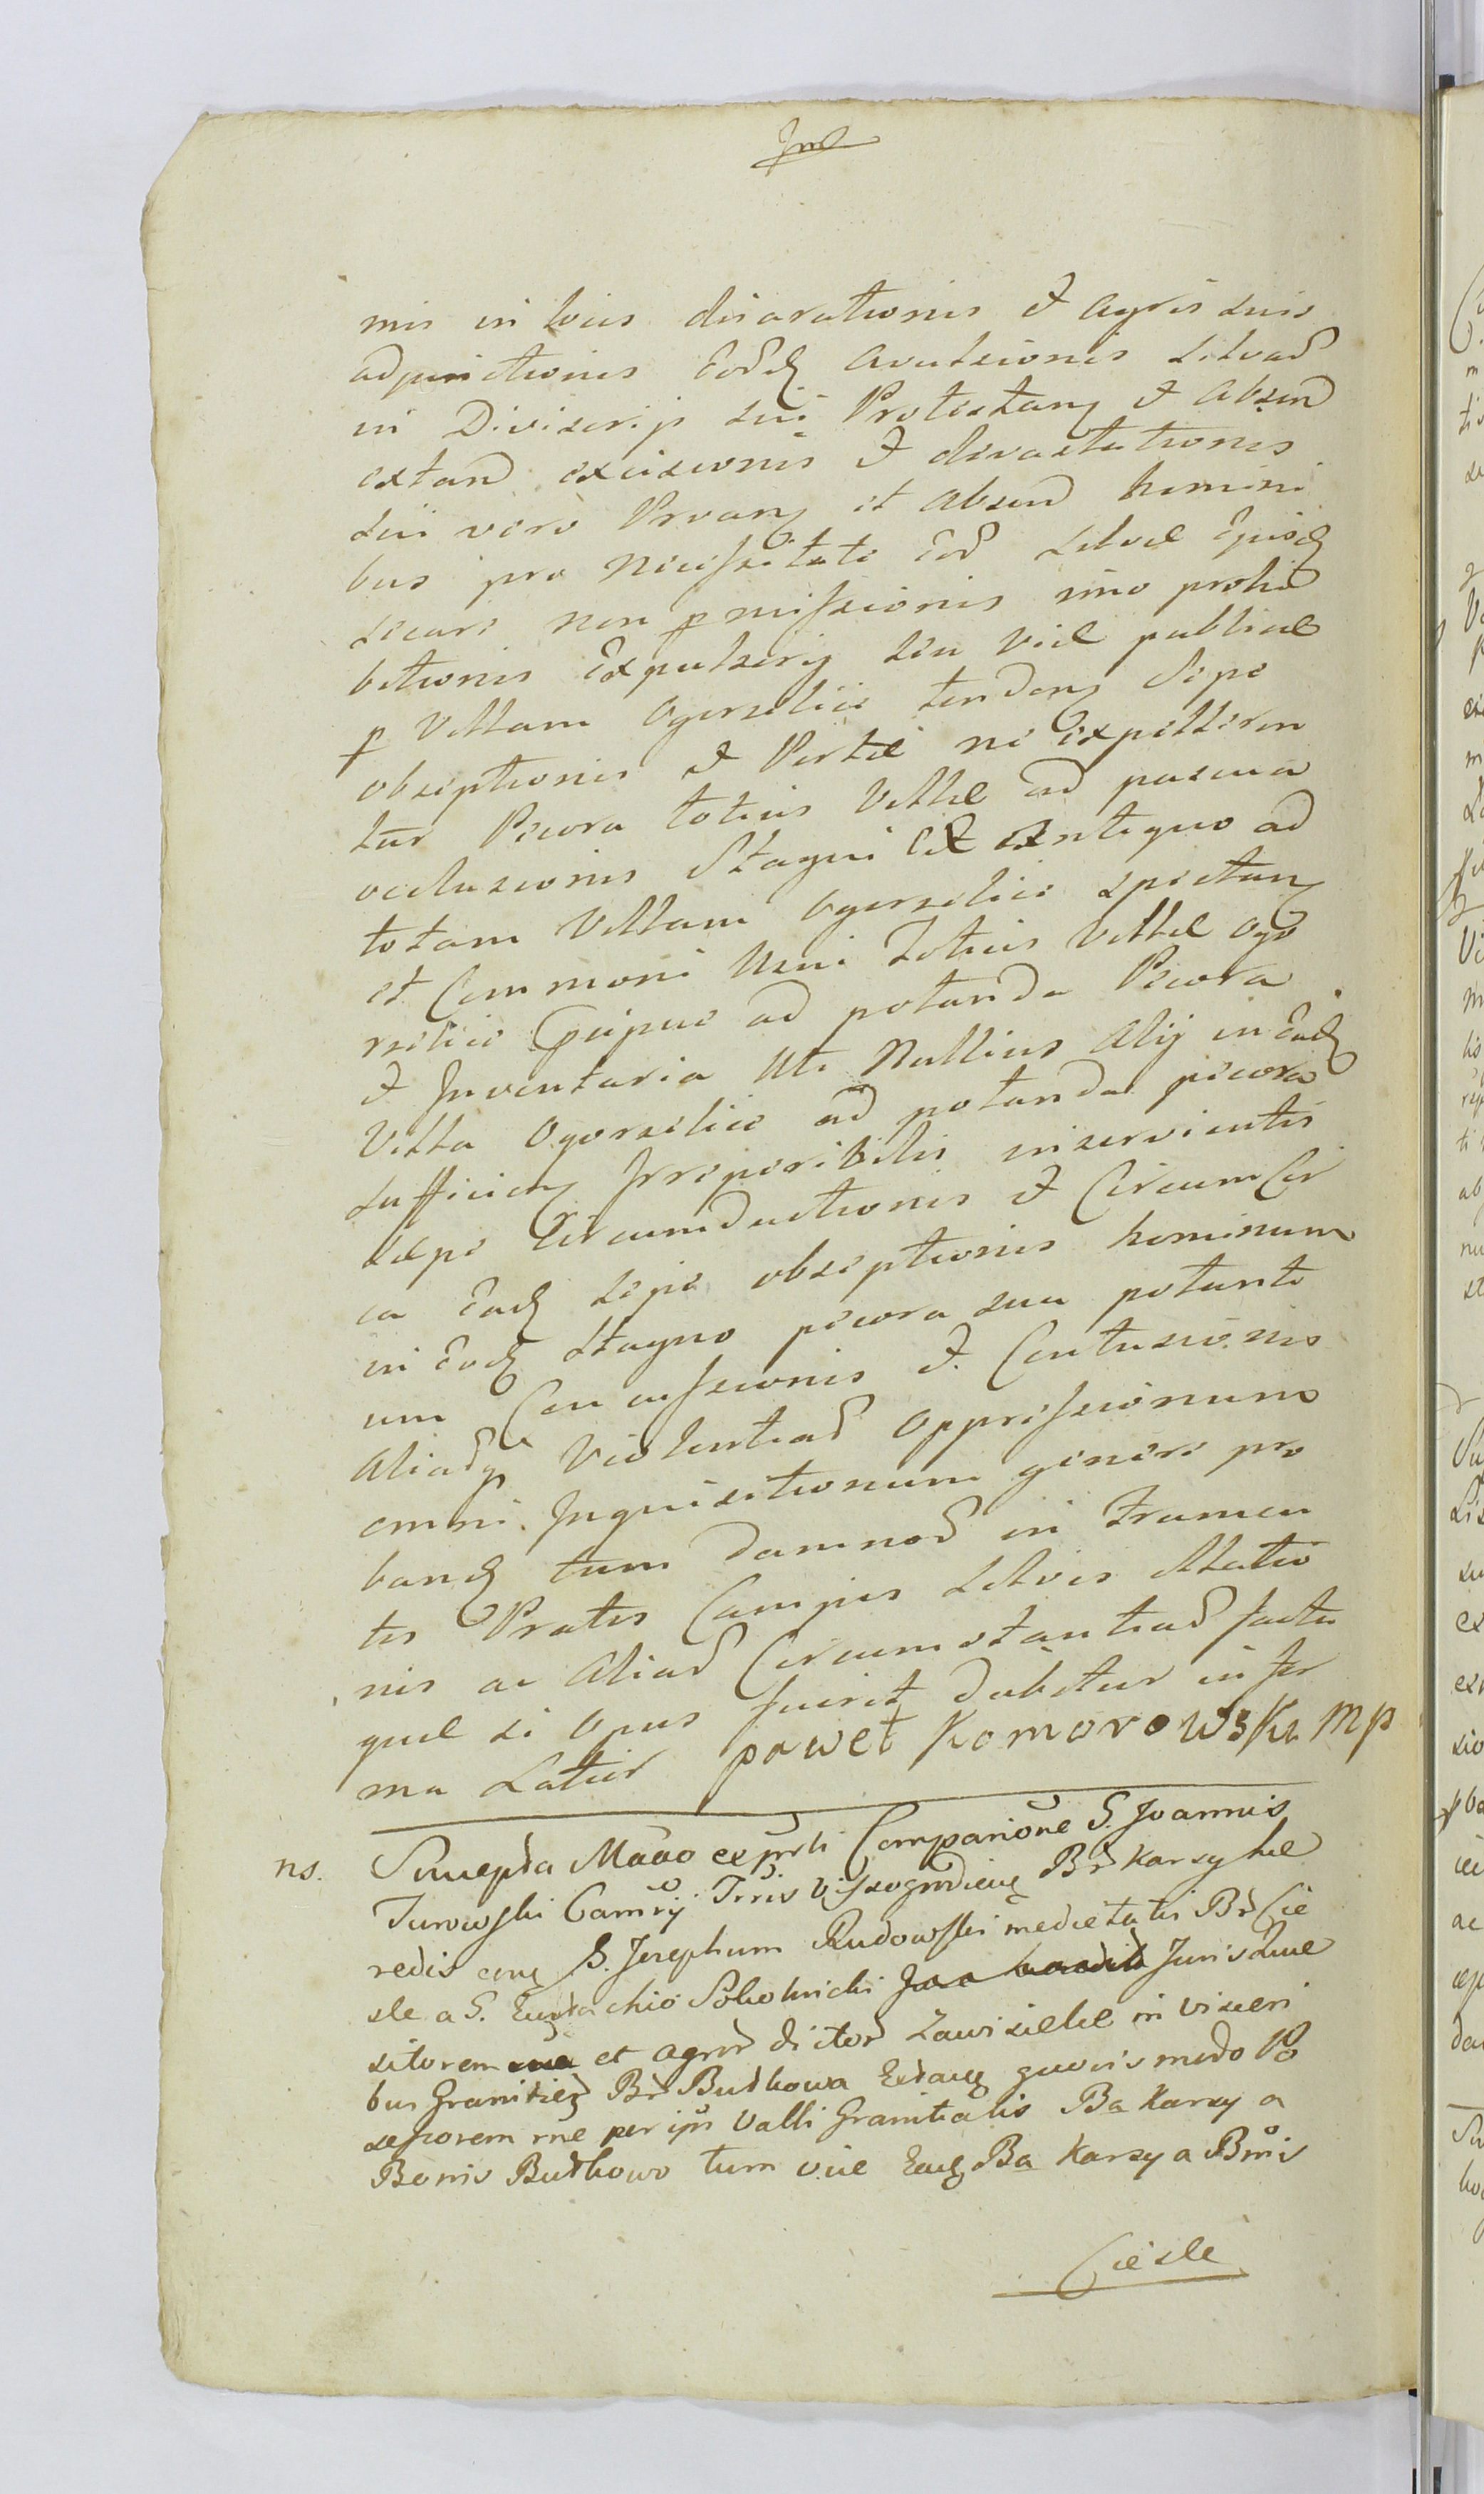 mis in locis disarationis et agris suis
adjunctionis Eord avulsionis silvad
in Diviserijs sui Protestan et absend
extand excisionis et devastationis
sui vero Prvan et absend homini
bus pro necissitate Ead silvae Ejusd
secare non pmissionis imo prohi
bitionis Expulsorij seu viae publicae
p Villam Ogorzelice tenden Sepe
obseptionis et Portae ne expelleren
tur Pecora totius Villae ad pascua
occlusionis Stagni ab antiquo ad
totam Villam Ogorzelice spectan
et Commoni Usui totius Villae Ogo
rzelice Cpipue ad potanda Pecora
et Inventaria Uti Nullius Alij in Ead
Villa Ogorzelice ad potanda pecora
sufficien Irreparibilis inservientis
sepe Circumductionis et Circum Cir
ca Ead sepe obseptionis hominum
in Eod Stagno pecora sua potanti
um Concussionis et Contusionis
Aliadq Violentiad oppressionum
omni Inquisitionum genere pro
band tum damnod in Frumen
tis Pratis Campis silvis illatio
nis ac Aliad Circumstantiad facta
quae si opus fuerit dabitur in for
ma Latior paweł Komorowski mp
ns. Suscepta Mtto ex prti Comparione S. Joannis
Turowski Camrij Trris Vissogrodien Br Karzy hae
redis cone S. Josephum Rudowski medietatis Br Cie
sle a S. Eustachio Sokolnicki Juris Quae
sitorem et agror dictor Zawisielae in viseri
bus Granitieb Br Budkowa Extan quovis modo Po
sessorem rne per ijs Valli Granitialis Ba Karzy a
Bonis Budkowo tum viae Ead Ba Karzy a Bnis
Ciesle